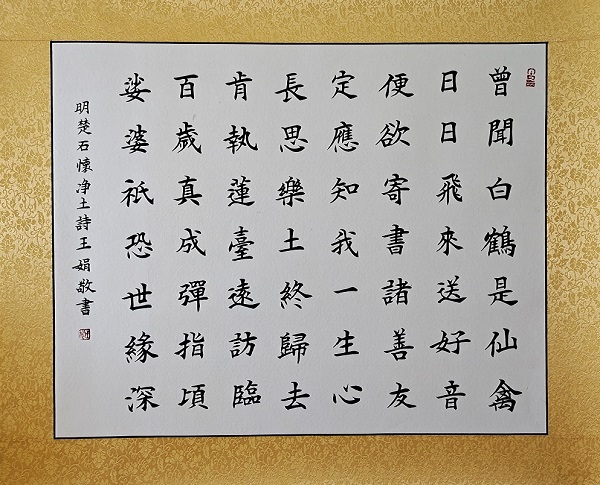 曾聞白鶴是仙禽
日日飛來送好音
便欲寄書諸善友
定應知我一生心
長思樂土終歸去
肯執蓮臺遠訪臨
百歲真成彈指頃
娑婆祇恐世緣深
明楚石懷净土詩王娟敬書